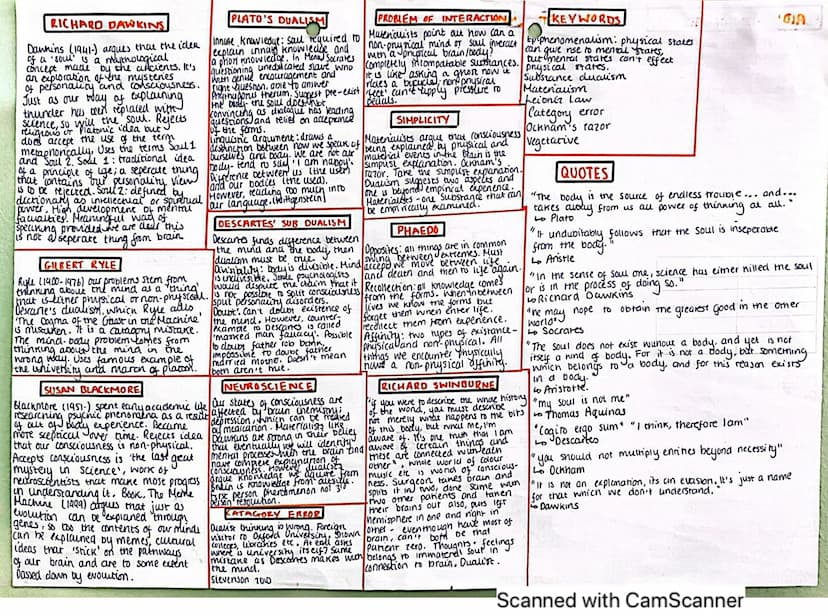 RICHARD DAWKINS
Dawkins (1941-) argues that the idea
of a 'soul' is a mythological
concept made by the ancients. It's
an exploration of the mysteries
of personality and consciousness.
Just as our way of explaining
thunder has been replaced with
science, so will the soul. Rejects
religious or Platonic idea but
does accept the use of the term
metaphorically. Uses the terms Soul 1
and Soul 2. Soul 1: traditional idea
of a principle of life, a seperate thing
that contains our personality. View
is to be rejected. Soul 2: defined by
dictionary as intellectual or spiritual
power. High development of mental
faculties. Meaningful way of
speaking provided we are clear this
is not a seperate thing from brain
GILBERT RYLE
Ryle (1900-1976) our problems stem from
thinking about the mind as a 'thing'
that is either physical or non-physical.
Descarte's dualism, which Ryle calls
'The Dogma of the Ghost in the Machine'
is mistaken. It is a category mistake.
The mind-body problem comes from
thinking about the mind in the
wrong way. Uses famous example of
the university and
SUSAN BLACKMORE
Blackmore (1951-) spent early academic life
researching psychic phenomena as a result
of out of body experience. Became
more sceptical over time. Rejects idea
that our consciousness is non-physical.
Accepts consciousness is 'the last great
mystery in science', work of
neuroscientists that make most progress
in understanding it. Book, The Meme
Machine (1999) argues that just as
evolution can be explained through
genes, so too the contents of our minds
can be explained by memes, cultural
ideas that 'stick' on the pathways
of our brain and are to some extent
passed down by evolution.
PLATO'S DUALISM
Innate knowledge: Soul required to
explain innate knowledge and
a priori knowledge. In Meno, Socrates
questioning uneducated slave who
with gentle encouragement and
right question, able to answer
Pythagoras theorum. Suggest pre-exist
the body - the soul does. Not
convincing as dialogue has leading
questions and relies on acceptance
of the forms.
Linguistic argument: draws a
distinction between how we speak of
ourselves and body. We are not our
body - tend to say 'I am happy'.
Difference between us (the user)
and our bodies (the used).
However, reading too much into
our language. (Wittgenstein)
DESCARTES' SUB DUALISM
Descartes finds difference between
the mind and the body, then
dualism must be true.
Divisibility: body is divisible. Mind
is indivisible. Some psychologists
would dispute the claim that it
is not possible to split consciousness
- split personality disorders.
Doubt: can't doubt existence of
the mind. However, counter
example to Descartes is called
'masked man fallacy'. Possible
to doubt father rob bank,
impossible to doubt father
robbed house. Doesn't mean
both aren't true.
NEUROSCIENCE
Our states of consciousness are
affected by brain chemistry:
depression, which can be treated
by medication. Materialists like
Dawkins are strong in their belief
that eventually we will identify
mental processes with the brain and
have complete explanation of
consciousness. However, dualists
argue knowledge we acquire from
brain is knowledge from outside.
First person phenomenon not 3rd
person resolution.
CATAGORY ERROR
Dualist thinking is wrong. Foreign
visitor to Oxford University, shown
colleges, libraries etc. At end asks
where is university itself? Same
mistake as Descartes makes with
the mind.
Stevenson 2010
PROBLEM OF INTERACTION
Materialists point out how can a
non-physical mind or soul interact
with a physical brain/body?
Completely incompatable substances.
It is like asking a ghost how it
rides a bicycle; non-physical
'feet' can't supply pressure to
pedals.
SIMPLICITY
Materialists argue that consciousness
being explained by physical and
material events in the brain is the
simplest explanation. Ockham's
razor. Take the simplest explanation.
Dualism suggests two aspects and
one is beyond empirical experience.
Materialists - one substance that can
be empirically examined.
PHAEDO
Opposites: all things are in common
swing between extremes. Must
accept we move between life
and death and then to life again.
Recollection: all knowledge comes
from the forms. When between
lives we know the forms but
forget them when enter life.
recollect them from experience.
Affinity: two types of existance -
physical and non-physical. All
things we encounter physically
have a non-physical affinity.
RICHARD SWINBOURNE
"if you were to describe the whole history
of the world, you must describe
not merely what happens to the bits
of this body, but what me, I'm
aware of. It's one truth that I am
aware of certain things and
these are connected with each
other". Whole world of colour
music etc is world of conscious-
ness. Surgeon takes brain and
splits it in two, done same with
two other patients and taken
their brains out also, puts left
hemisphere in one and right in
other - even though have most of
brain, can't both be that
patient zero. Thoughts + feelings
belongs to immaterial soul in
connection to brain. Dualist.
KEYWORDS
Epiphenomenalism: physical states
can give rise to mental states,
but mental states can't effect
physical states.
Substance dualism
Materialism
Leibniz Law
Category error
Ockham's razor
Vegetative
QUOTES
"The body is the source of endless trouble... and...
takes away from us all power of thinking at all."
↳ Plato
"It undoubitably follows that the soul is inseperable
from the body."
↳ Aristle
"In the sense of soul one, science has either killed the soul
or is in the process of doing so."
↳ Richard Dawkins
"he may hope to obtain the greatest good in the other
world"
↳ Socrates
"The soul does not exist without a body and yet is not
itself a kind of body. For it is not a body, but something
which belongs to a body, and for this reason exists
in a body.
↳ Aristotle.
"my soul is not me"
↳ Thomas Aquinas
"Cogito ergo sum" "I think, therefore I am"
↳ Descartes
"you should not multiply entities beyond necessity"
↳ Ockham
"It is not an explanation, its an evasion. It's just a name
for that which we don't understand."
↳ Dawkins
Scanned with CamScanner